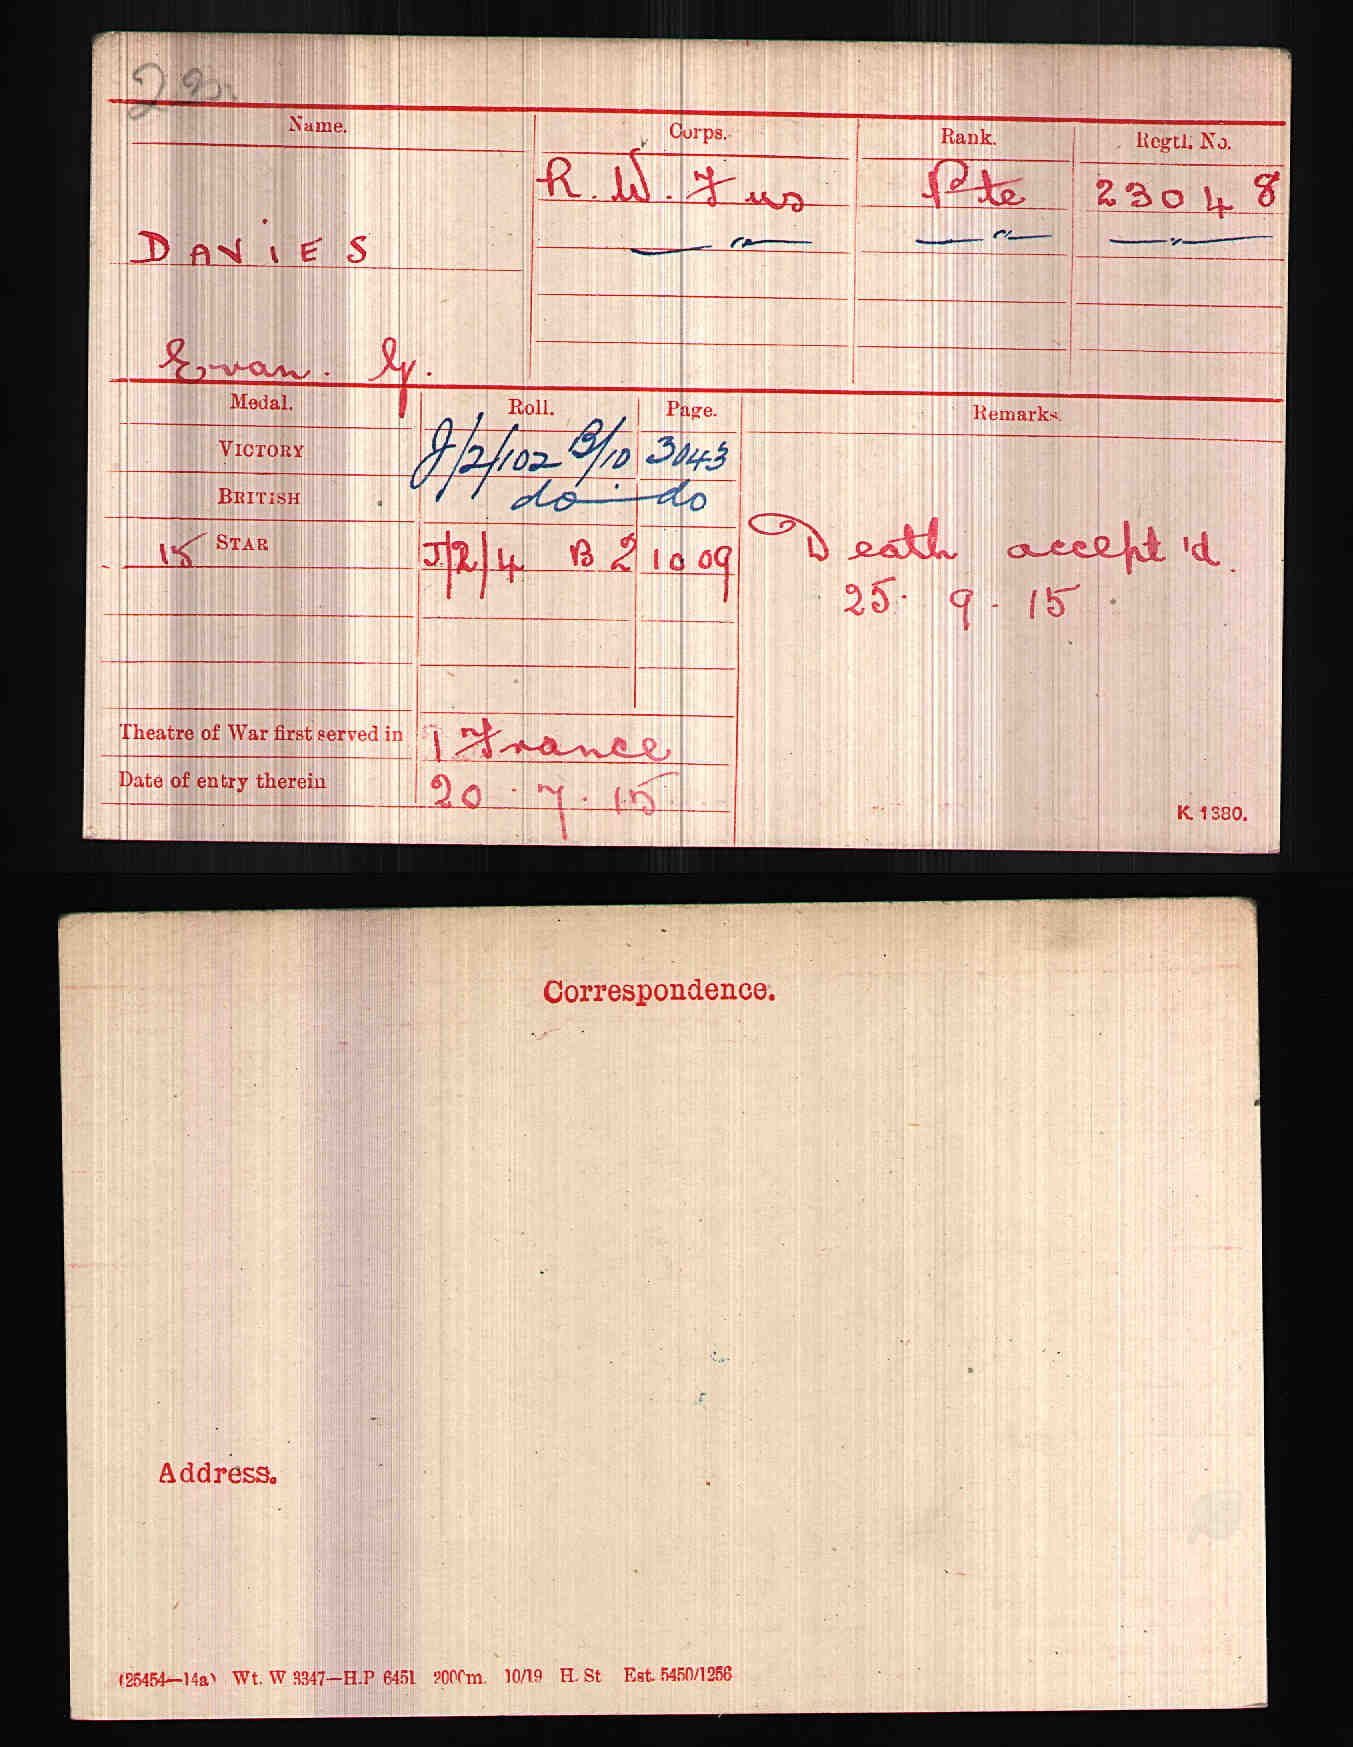 Name. Corps. Rank. Regtl. No.
R. W. Fus Pte 23048
DAVIES — " — — " — — " —
Evan. G.
Medal. Roll. Page. Remarks.
VICTORY J/2/102 B/10 3043
BRITISH do — do
15 STAR J/2/4 B 2 1009 Death accept'd.
25. 9. 15
Theatre of War first served in 1 France
Date of entry therein 20. 7. 15
K. 1380.
Correspondence.
Address.
(25454—14a) Wt. W 3347—H.P 6451 2000m. 10/19 H. St Est. 5450/1256